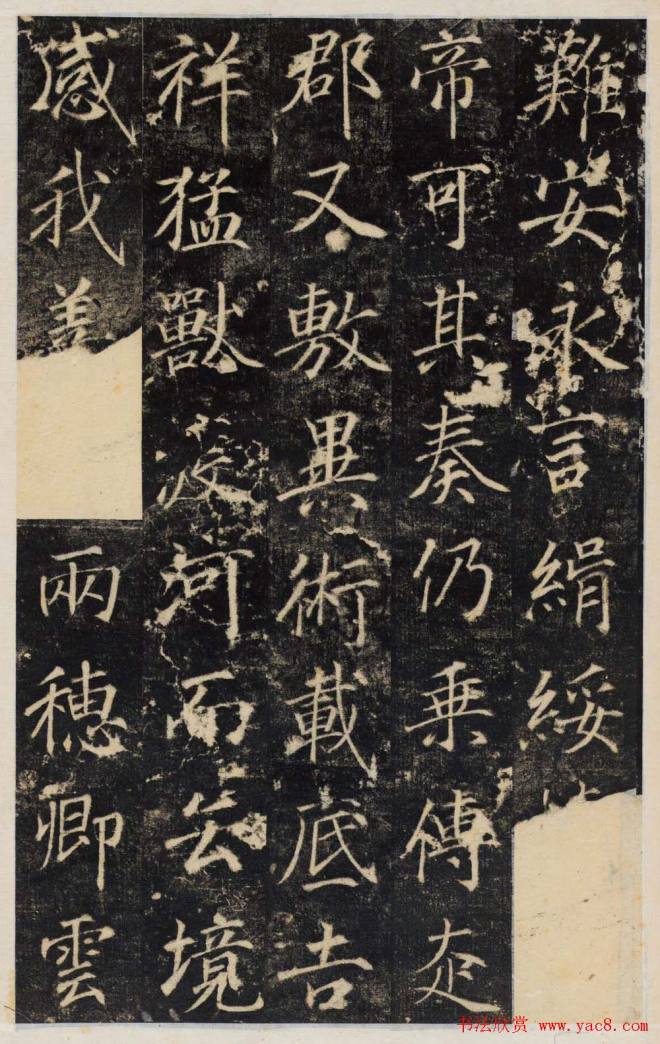 難安永言緝綏
帝可其奏仍乗傳
郡又敷異術載底吉
祥猛獸河而去境
感我兩穗卿雲
书法欣赏 www.yac8.com